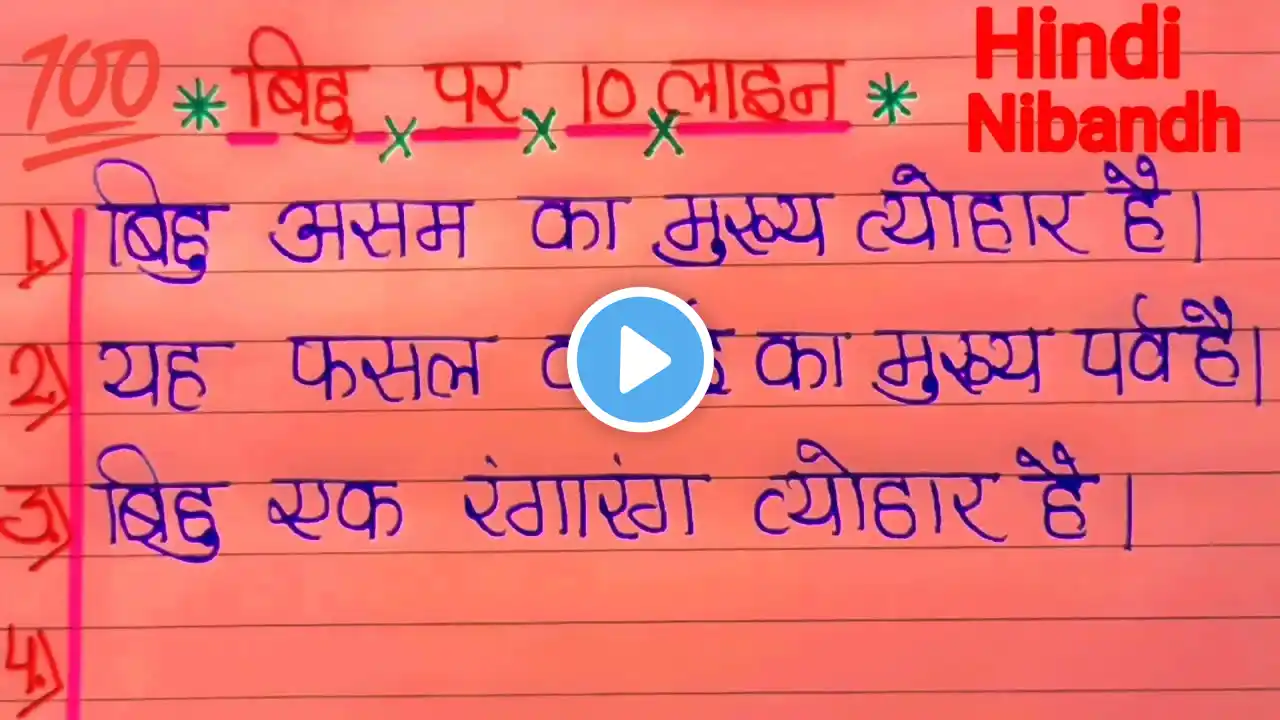 100
* बिहु पर 10 लाइन *
Hindi
Nibandh
1) बिहु असम का मुख्य त्योहार है।
2) यह फसल का मुख्य पर्व है।
3) बिहु एक रंगारंग त्योहार है।
4)